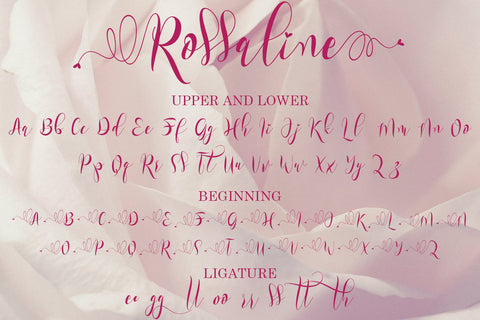 Rossaline
UPPER AND LOWER
Aa Bb Cc Dd Ee Ff Gg Hh Ii Jj Kk Ll Mm Nn Oo
Pp Qq Rr SS TT Uu Vv Ww Xx Yy Zz
BEGINNING
A B C D E F G H I J K L M N
O P Q R S T U V W X Y Z
LIGATURE
ee gg ll oo rr ss tt th